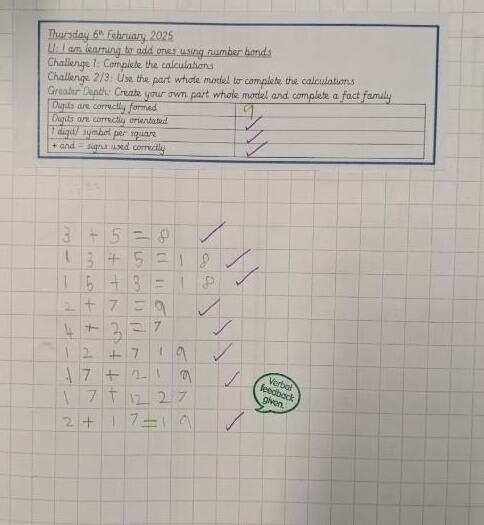 Thursday 6th February 2025
LI: I am learning to add ones using number bonds
Challenge 1: Complete the calculations
Challenge 2/3: Use the part whole model to complete the calculations
Greater Depth: Create your own part whole model and complete a fact family
Digits are correctly formed 9
Digits are correctly orientated ✓
1 digit/ symbol per square ✓
+ and = signs used correctly ✓
3 + 5 = 8 ✓
1 3 + 5 = 1 8 ✓
1 5 + 3 = 1 8 ✓
2 + 7 = 9 ✓
4 + 3 = 7 ✓
1 2 + 7 1 9 ✓
1 7 + 2 1 9 ✓
1 7 + 12 2 7
2 + 1 7 = 1 9 ✓
Verbal
feedback
given.